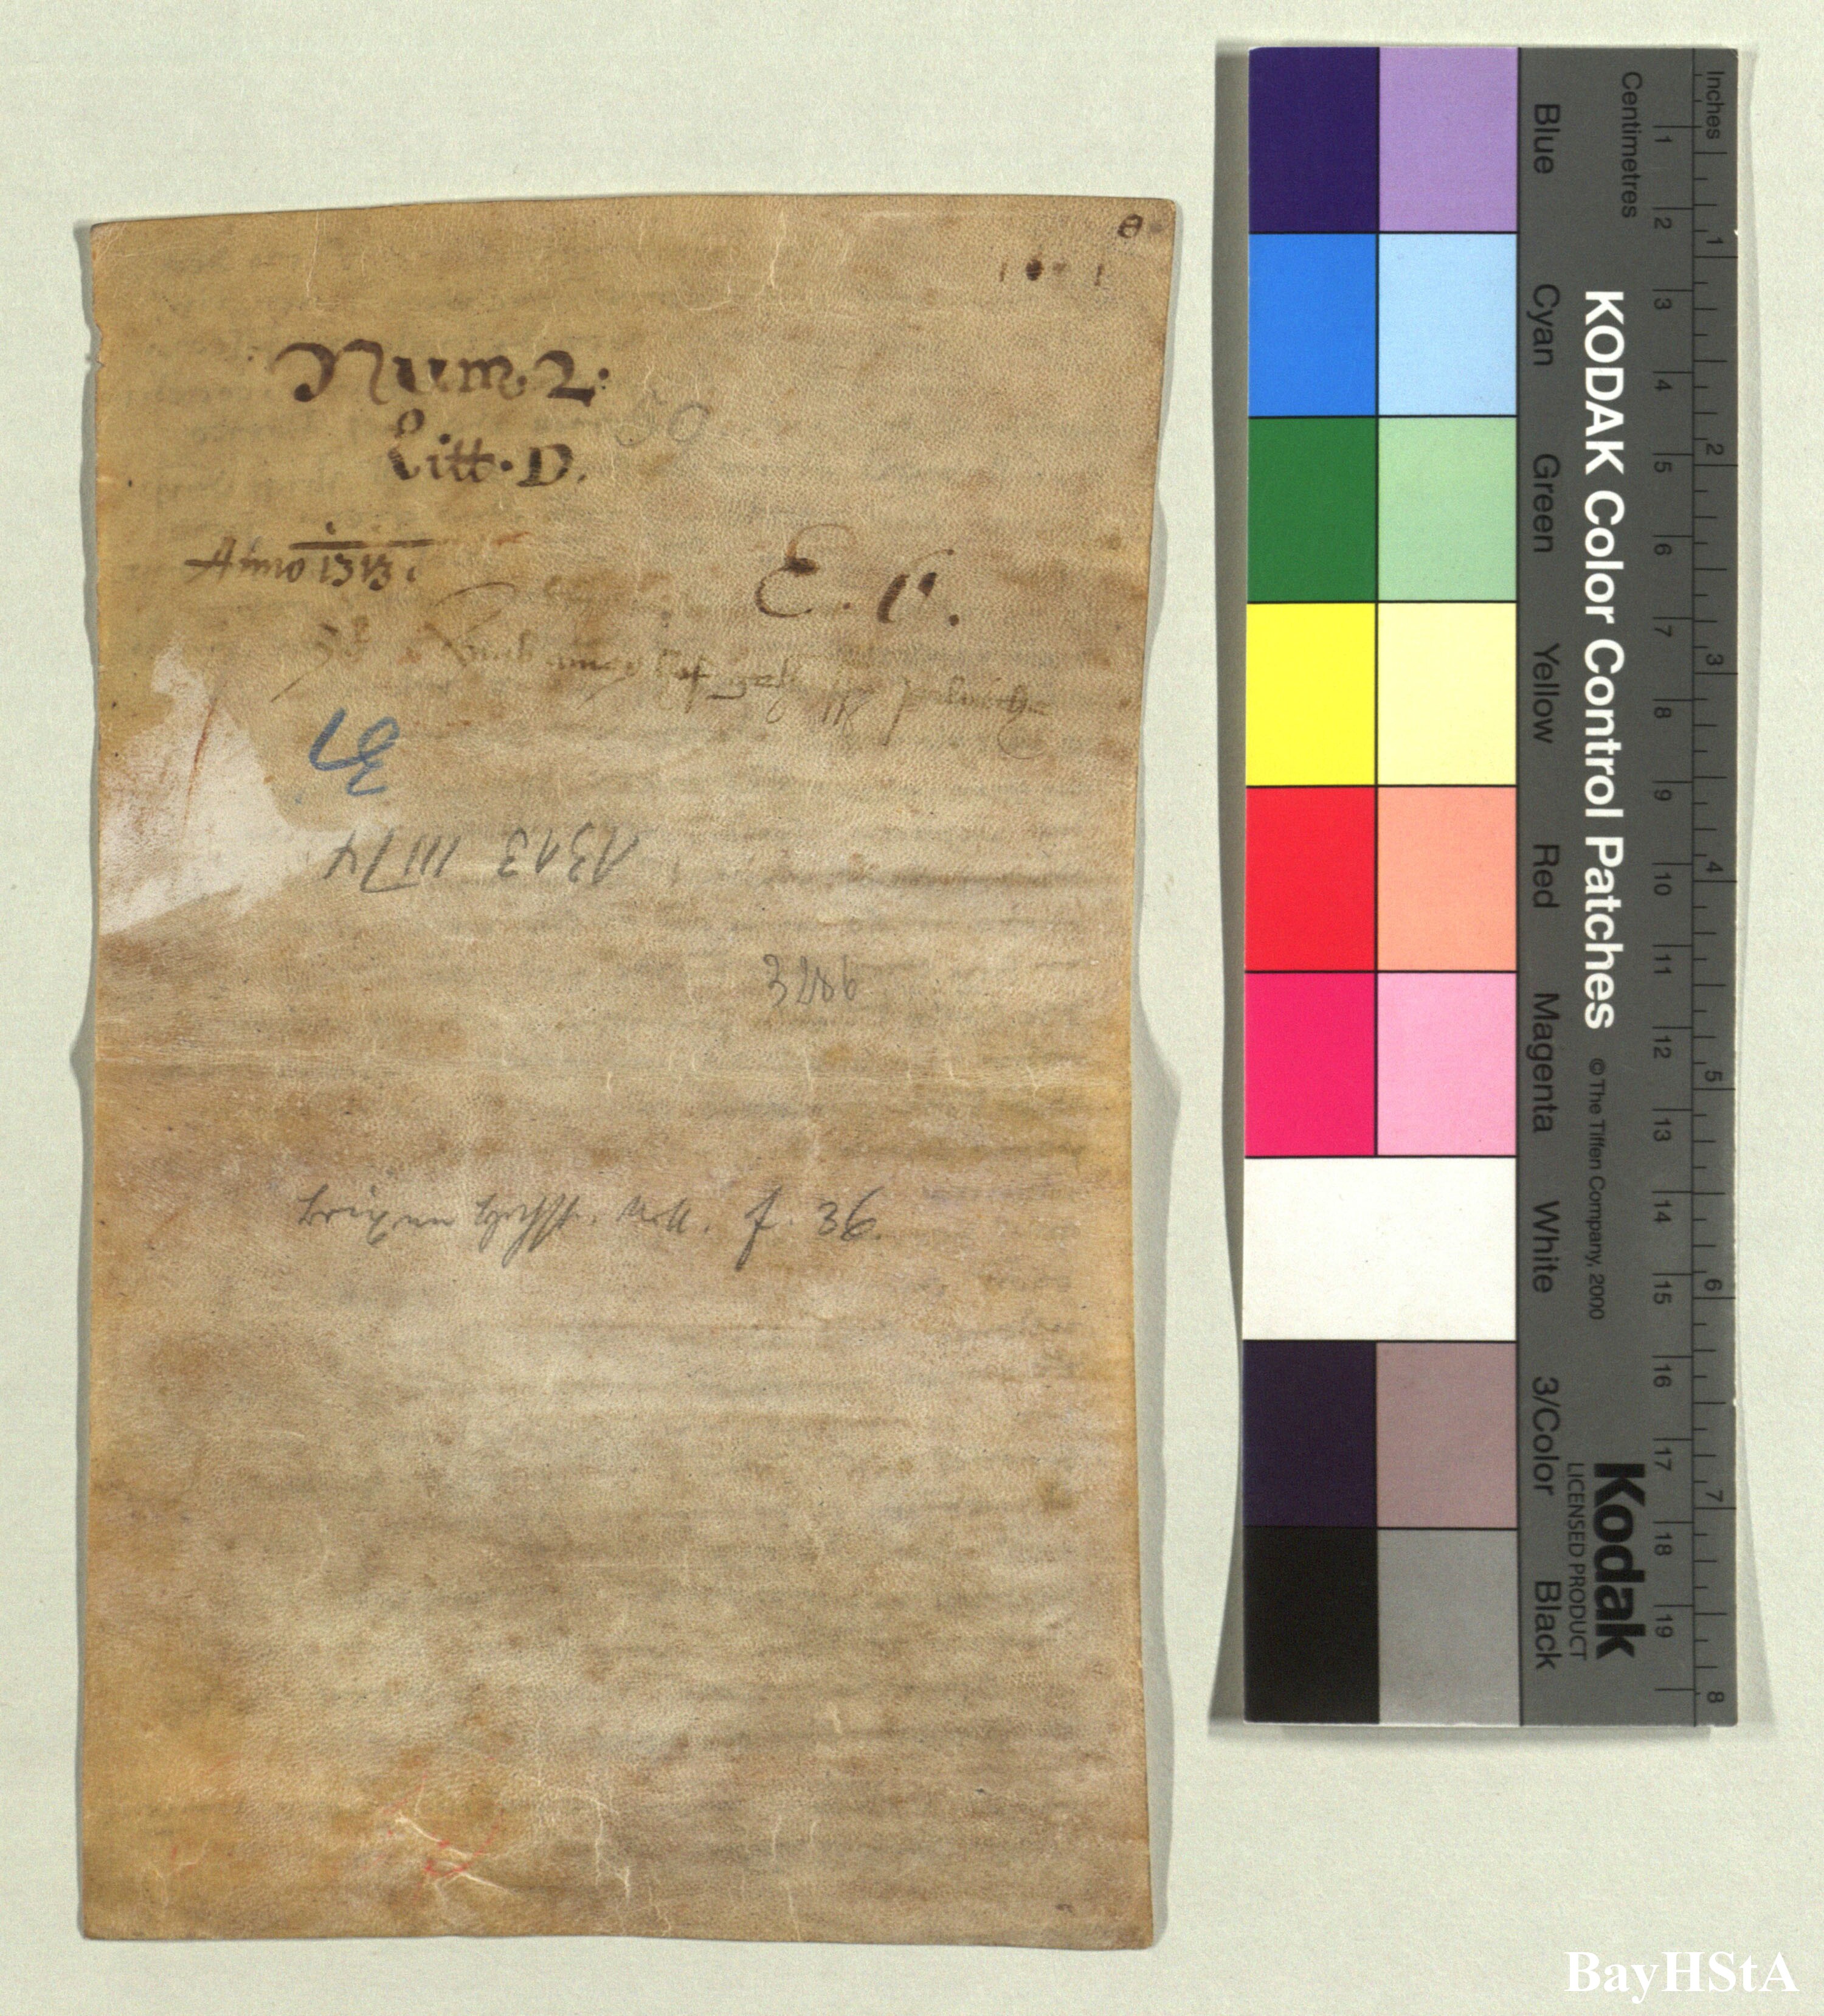 Num. 2.
Litt. D.
50
Anno 1313
E. 6.
37
1313 III 14
3206
Brixen Hochst. Urk. f. 36.
Inches
Centimetres
1 2 3 4 5 6 7 8 9 10 11 12 13 14 15 16 17 18 19
1 2 3 4 5 6 7 8
KODAK Color Control Patches
©The Tiffen Company, 2000
Kodak
LICENSED PRODUCT
Blue
Cyan
Green
Yellow
Red
Magenta
White
3/Color
Black
BayHStA